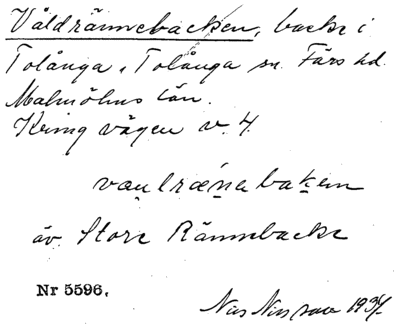 Våldrännebacken, backe i
Tolånga, Tolånga sn. Färs hd.
Malmöhus län.
Kring vägen v. 4.
äv. Stora Rännebacke
Nr 5596.
Nils Nilsson 1934.